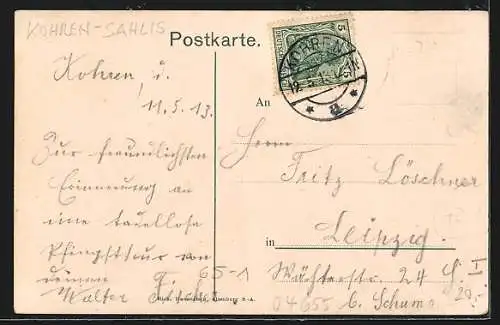 KOHREN-SAHLIS
Postkarte.
Kohren, d.
11.5.13.
Zur freundlichsten
Erinnerung an
eine tadellose
Pfingsttour von
deinem
Walter Fischer
65-1
5
KOHREN
12.5.13
* a *
An
Herrn
Fritz Löschner
in Leipzig.
Wächterstr. 24
b. Schuma
04655
I
20,-